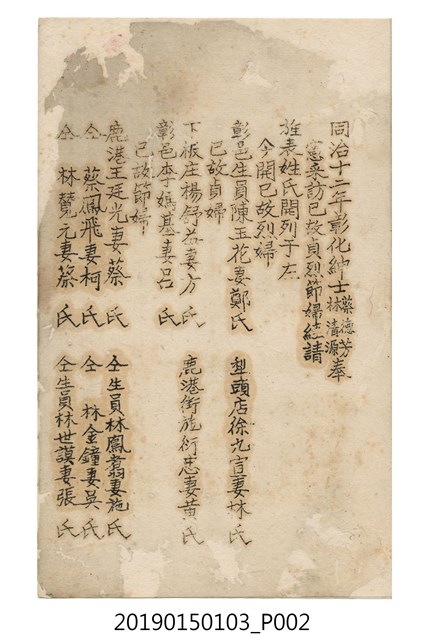 同治十二年彰化紳士蔡德芳林清源奉
憲采訪已故貞烈節婦經請
旌表姓氏開列于左
今開已故烈婦
彰邑生員陳玉花妻鄭氏 犁頭店徐九官妻林氏
已故貞婦
下板庄楊舒益妻方氏 鹿港街施衍忠妻黃氏
彰邑李媽基妻呂氏
已故節婦
鹿港王廷光妻蔡氏 仝生員林鳳翥妻施氏
仝 蔡鳳飛妻柯氏 仝 林金鐘妻吳氏
仝 林贊元妻蔡氏 仝生員林世謨妻張氏
20190150103_P002